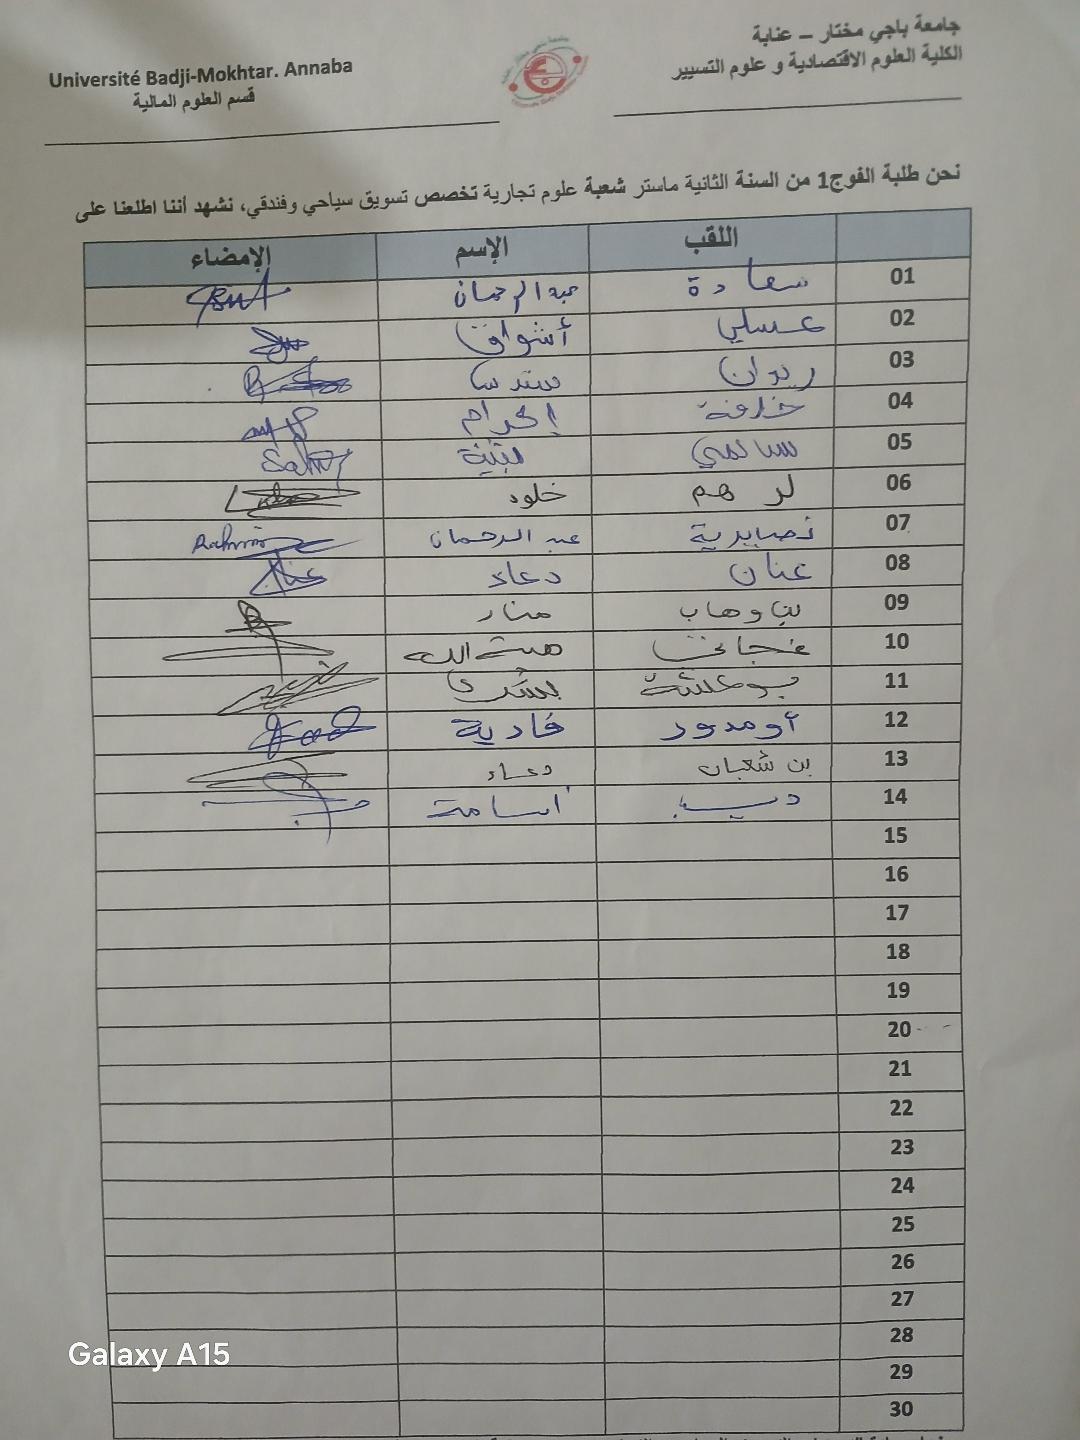 جامعة باجي مختار – عنابة
الكلية العلوم الاقتصادية و علوم التسيير
Université Badji-Mokhtar. Annaba
قسم العلوم المالية
نحن طلبة الفوج1 من السنة الثانية ماستر شعبة علوم تجارية تخصص تسويق سياحي وفندقي، نشهد أننا اطلعنا على
اللقب الإسم الإمضاء
01 سعادة عبد الرحمان
02 عسلي أشواق
03 زيوان سندس
04 خلافة إكرام
05 ساسي بثينة
06 لزهم خلود
07 نصايرية عبد الرحمان
08 عنان دعاء
09 بن وهاب منار
10 هبة الله
11 بوعكشة بشرى
12 أومدور فادية
13 بن شعبان دعاء
14 ديب أسامة
15
16
17
18
19
20
21
22
23
24
25
26
27
28
29
30
Galaxy A15